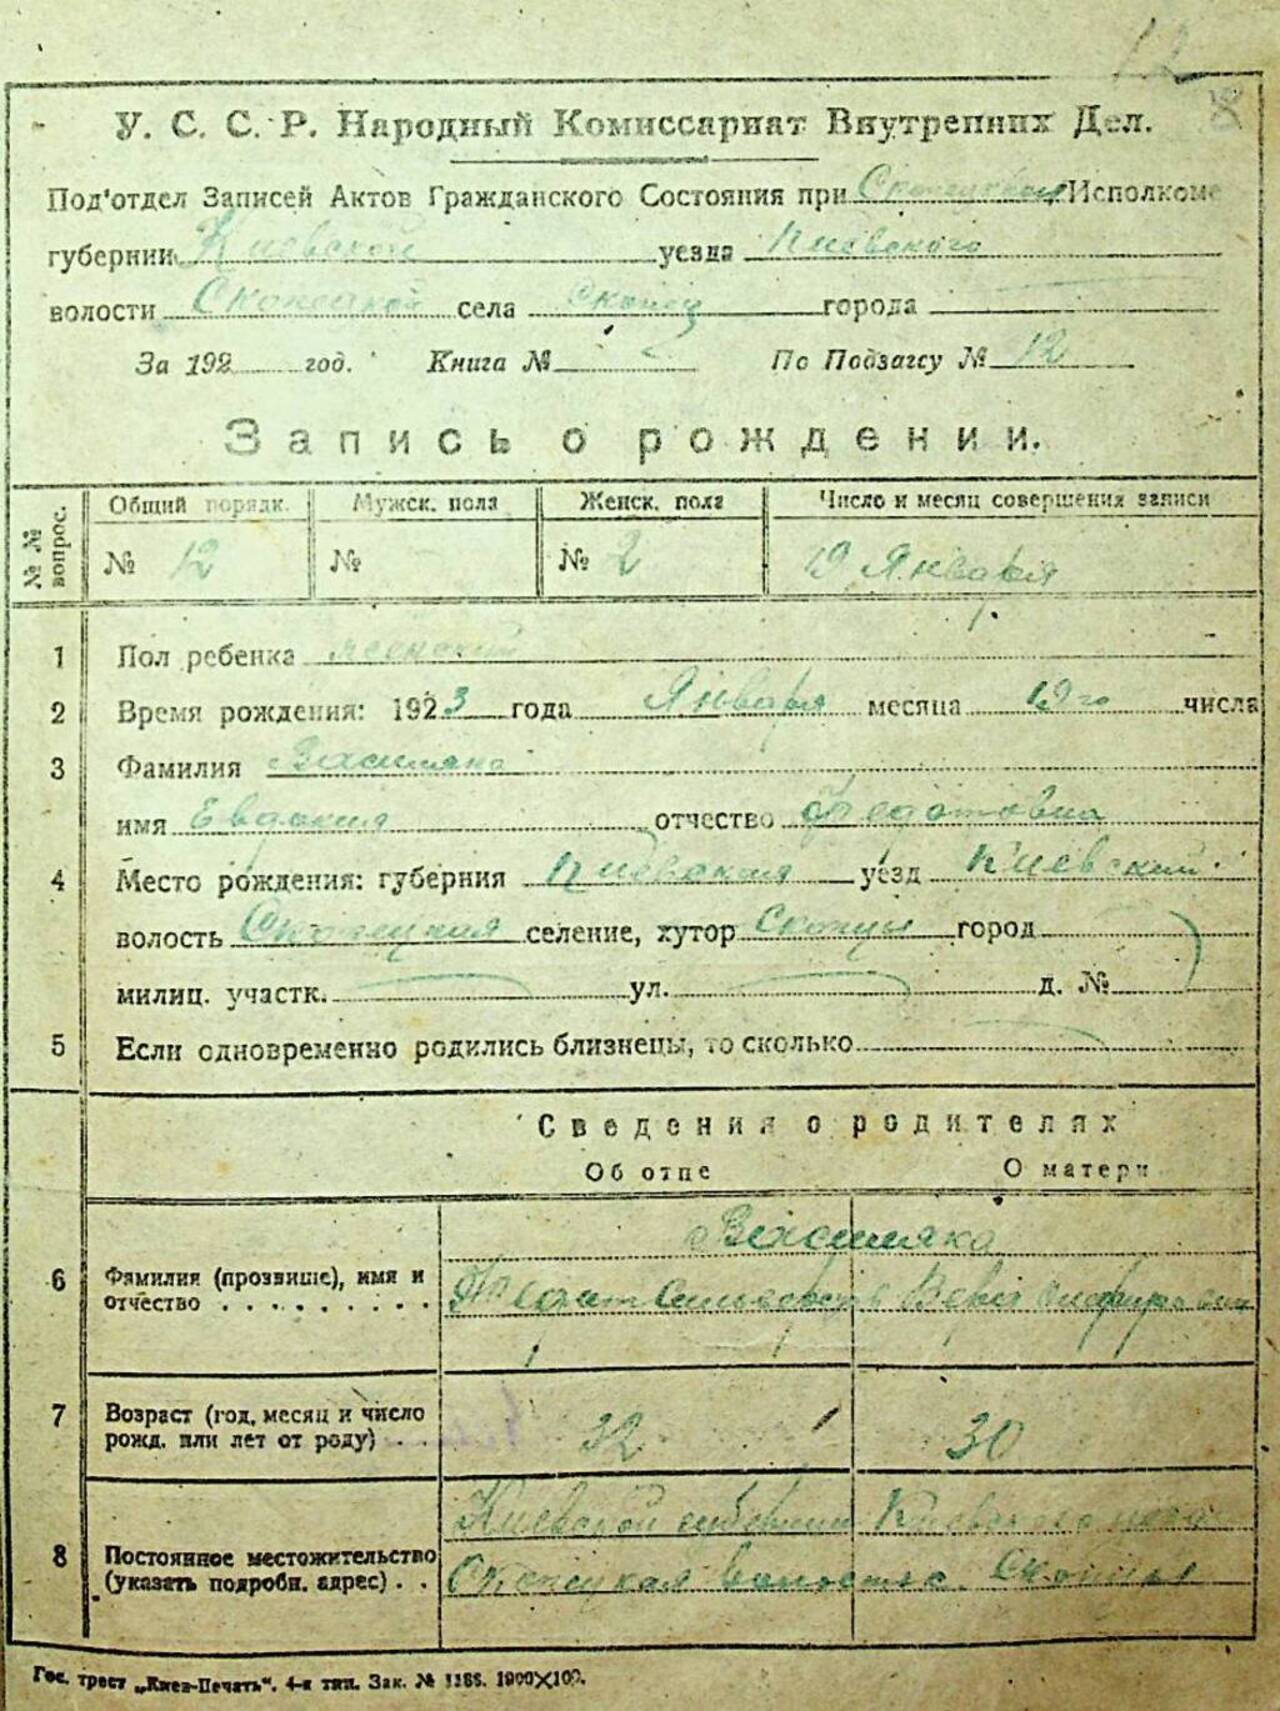 12
У. С. С. Р. Народный Комиссариат Внутренних Дел.
Под'отдел Записей Актов Гражданского Состояния при Скопецком Исполкоме
губернии Киевской уезда Киевского
волости Скопецкой села Скопцы города
За 192 год. Книга № По Подзагсу № 12
Запись о рождении.
№№ вопрос. Общий порядк. Мужск. пола Женск. пола Число и месяц совершения записи
№ 12 № № 2 19 Января
1 Пол ребенка женский
2 Время рождения: 1923 года Января месяца 19го числа
3 Фамилия
имя Евдокия отчество Федотовна
4 Место рождения: губерния Киевская уезд Киевский
волость Скопецкая селение, хутор Скопцы город
милиц. участк. ул. д. №
5 Если одновременно родились близнецы, то сколько
Сведения о родителях
Об отце О матери
6 Фамилия (прозвище), имя и
отчество Федот Вера
7 Возраст (год, месяц и число
рожд. или лет от роду) 32 30
8 Постоянное местожительство
(указать подробн. адрес)
Киевской губернии Киевского
Скопецкая волость с. Скопцы
Гос. трест „Киев-Печать“. 4-я тип. Зак. № 1186. 1900×100.